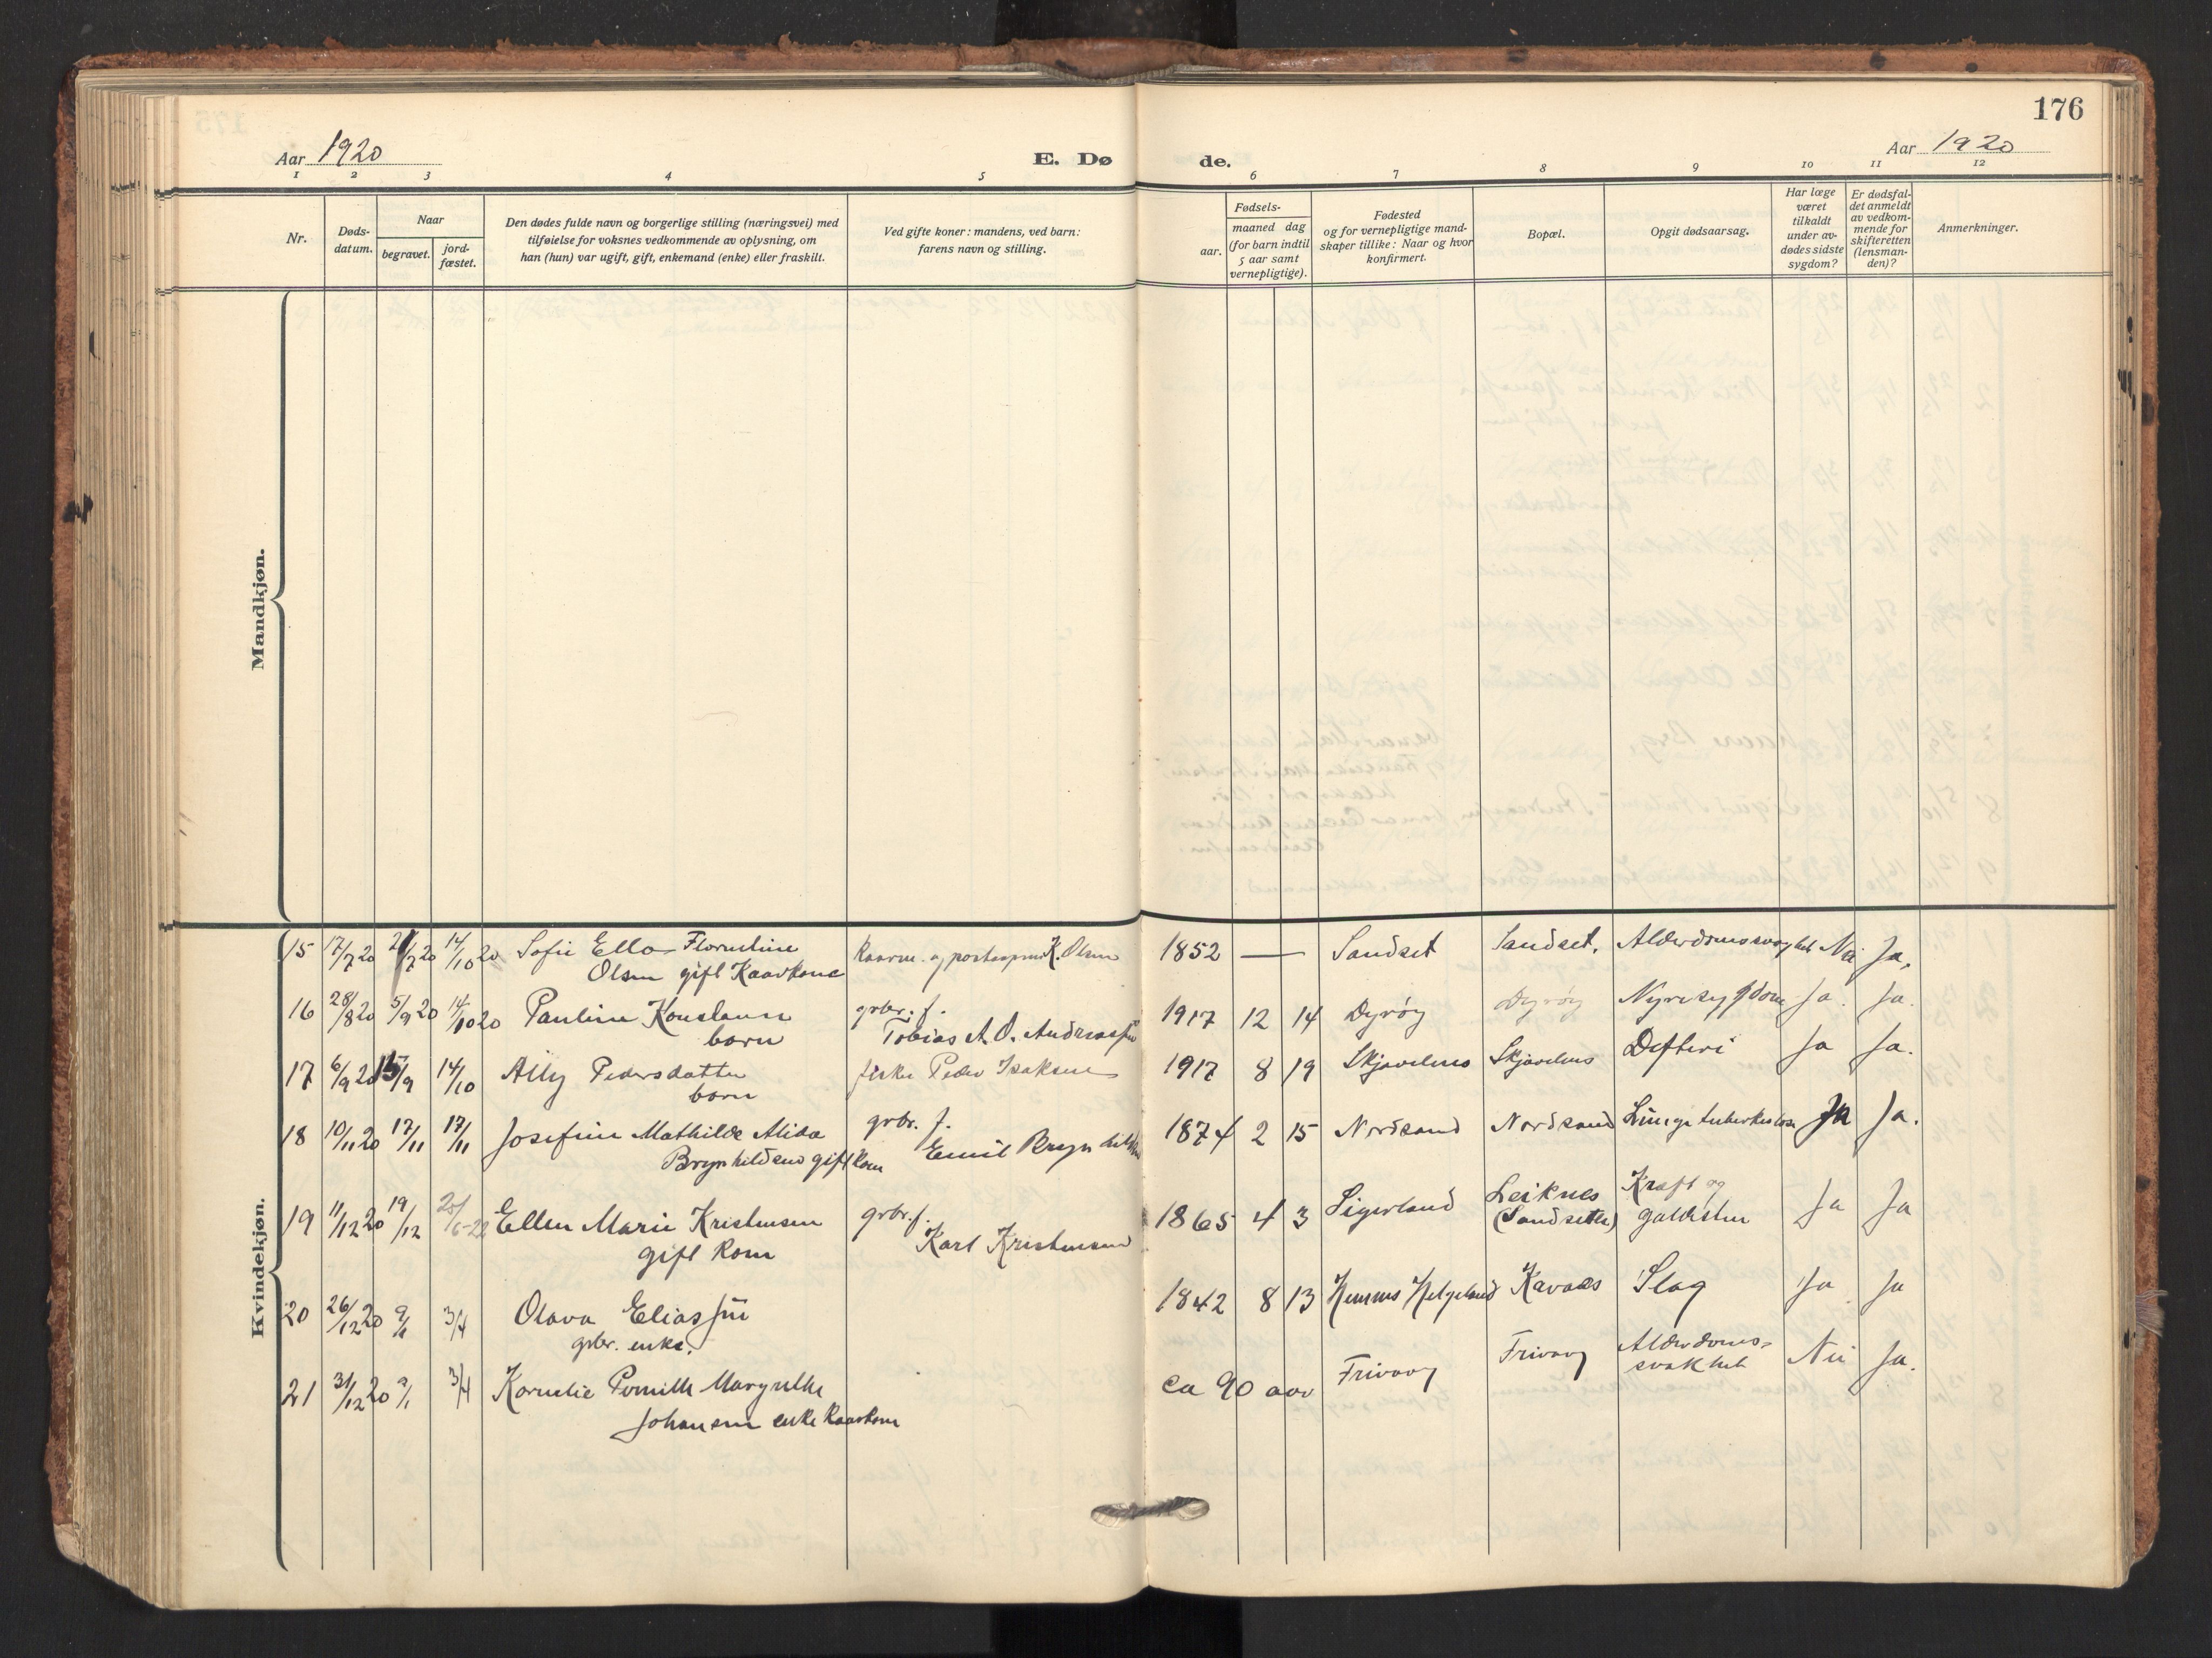 176
Aar 1920
E. Dø
de.
Aar 1920
1 2 3 4 5 6 7 8 9 10 11 12
Nr.
Døds-
datum.
Naar
begravet.
jord-
fæstet.
Den dødes fulde navn og borgerlige stilling (næringsvei) med
tilføielse for voksnes vedkommende av oplysning, om
han (hun) var ugift, gift, enkemand (enke) eller fraskilt.
Ved gifte koner: mandens, ved barn:
farens navn og stilling.
Fødsels-
aar.
maaned dag
(for barn indtil
5 aar samt
vernepligtige).
Fødested
og for vernepligtige mand-
skaper tillike: Naar og hvor
konfirmert.
Bopæl.
Opgit dødsaarsag.
Har læge
været
tilkaldt
under av-
dødes sidste
sygdom?
Er dødsfal-
det anmeldt
av vedkom-
mende for
skifteretten
(lensman-
den)?
Anmerkninger.
Mandkjøn.
Kvindekjøn.
15 17/7 20 /7 20 14/10 20 Sofie Ella Florentine 1852 — Sandset Sandset. Alderdomssvaghet Nei Ja.
Olsen gift Kaarkone K. Olsen
16 28/8 20 5/9 20 14/10 20 Pauline Konstanse grbr. f. 1917 12 14 Dyrøy Dyrøy Nyresygdom Ja. Ja.
barn Tobias A. O. Andreassen
17 6/9 20 15/9 14/10 Ally Pedersdatter fisker Peder Isaksen 1917 8 19 Skjavelnes Skjavelnes Defteri Ja Ja.
barn
18 10/11 20 17/11 17/11 Josefine Mathilde Alida grbr. f. 1874 2 15 Nordsand Nordsand Lunge tuberkulose Ja Ja.
Brynhildsen gift kone Emil Brynhildsen
19 11/12 20 19/12 /6-22 Ellen Marie Kristensen grbr. f. 1865 4 3 Sigerland Leiknes Kræft og Ja Ja
gift kone Karl Kristensen (Sandseter) galdesten
20 26/12 20 9/1 3/4 Olava Eliassen 1842 8 13 Hemnes Helgeland Kavaas Slag Ja Ja
grbr. enke.
21 31/12 20 9/1 3/4 Kornelie Pernille Margrethe ca 90 aar Frivaag Frivaag Alderdoms- Nei Ja.
svakhet
Johansen enke kaarkone